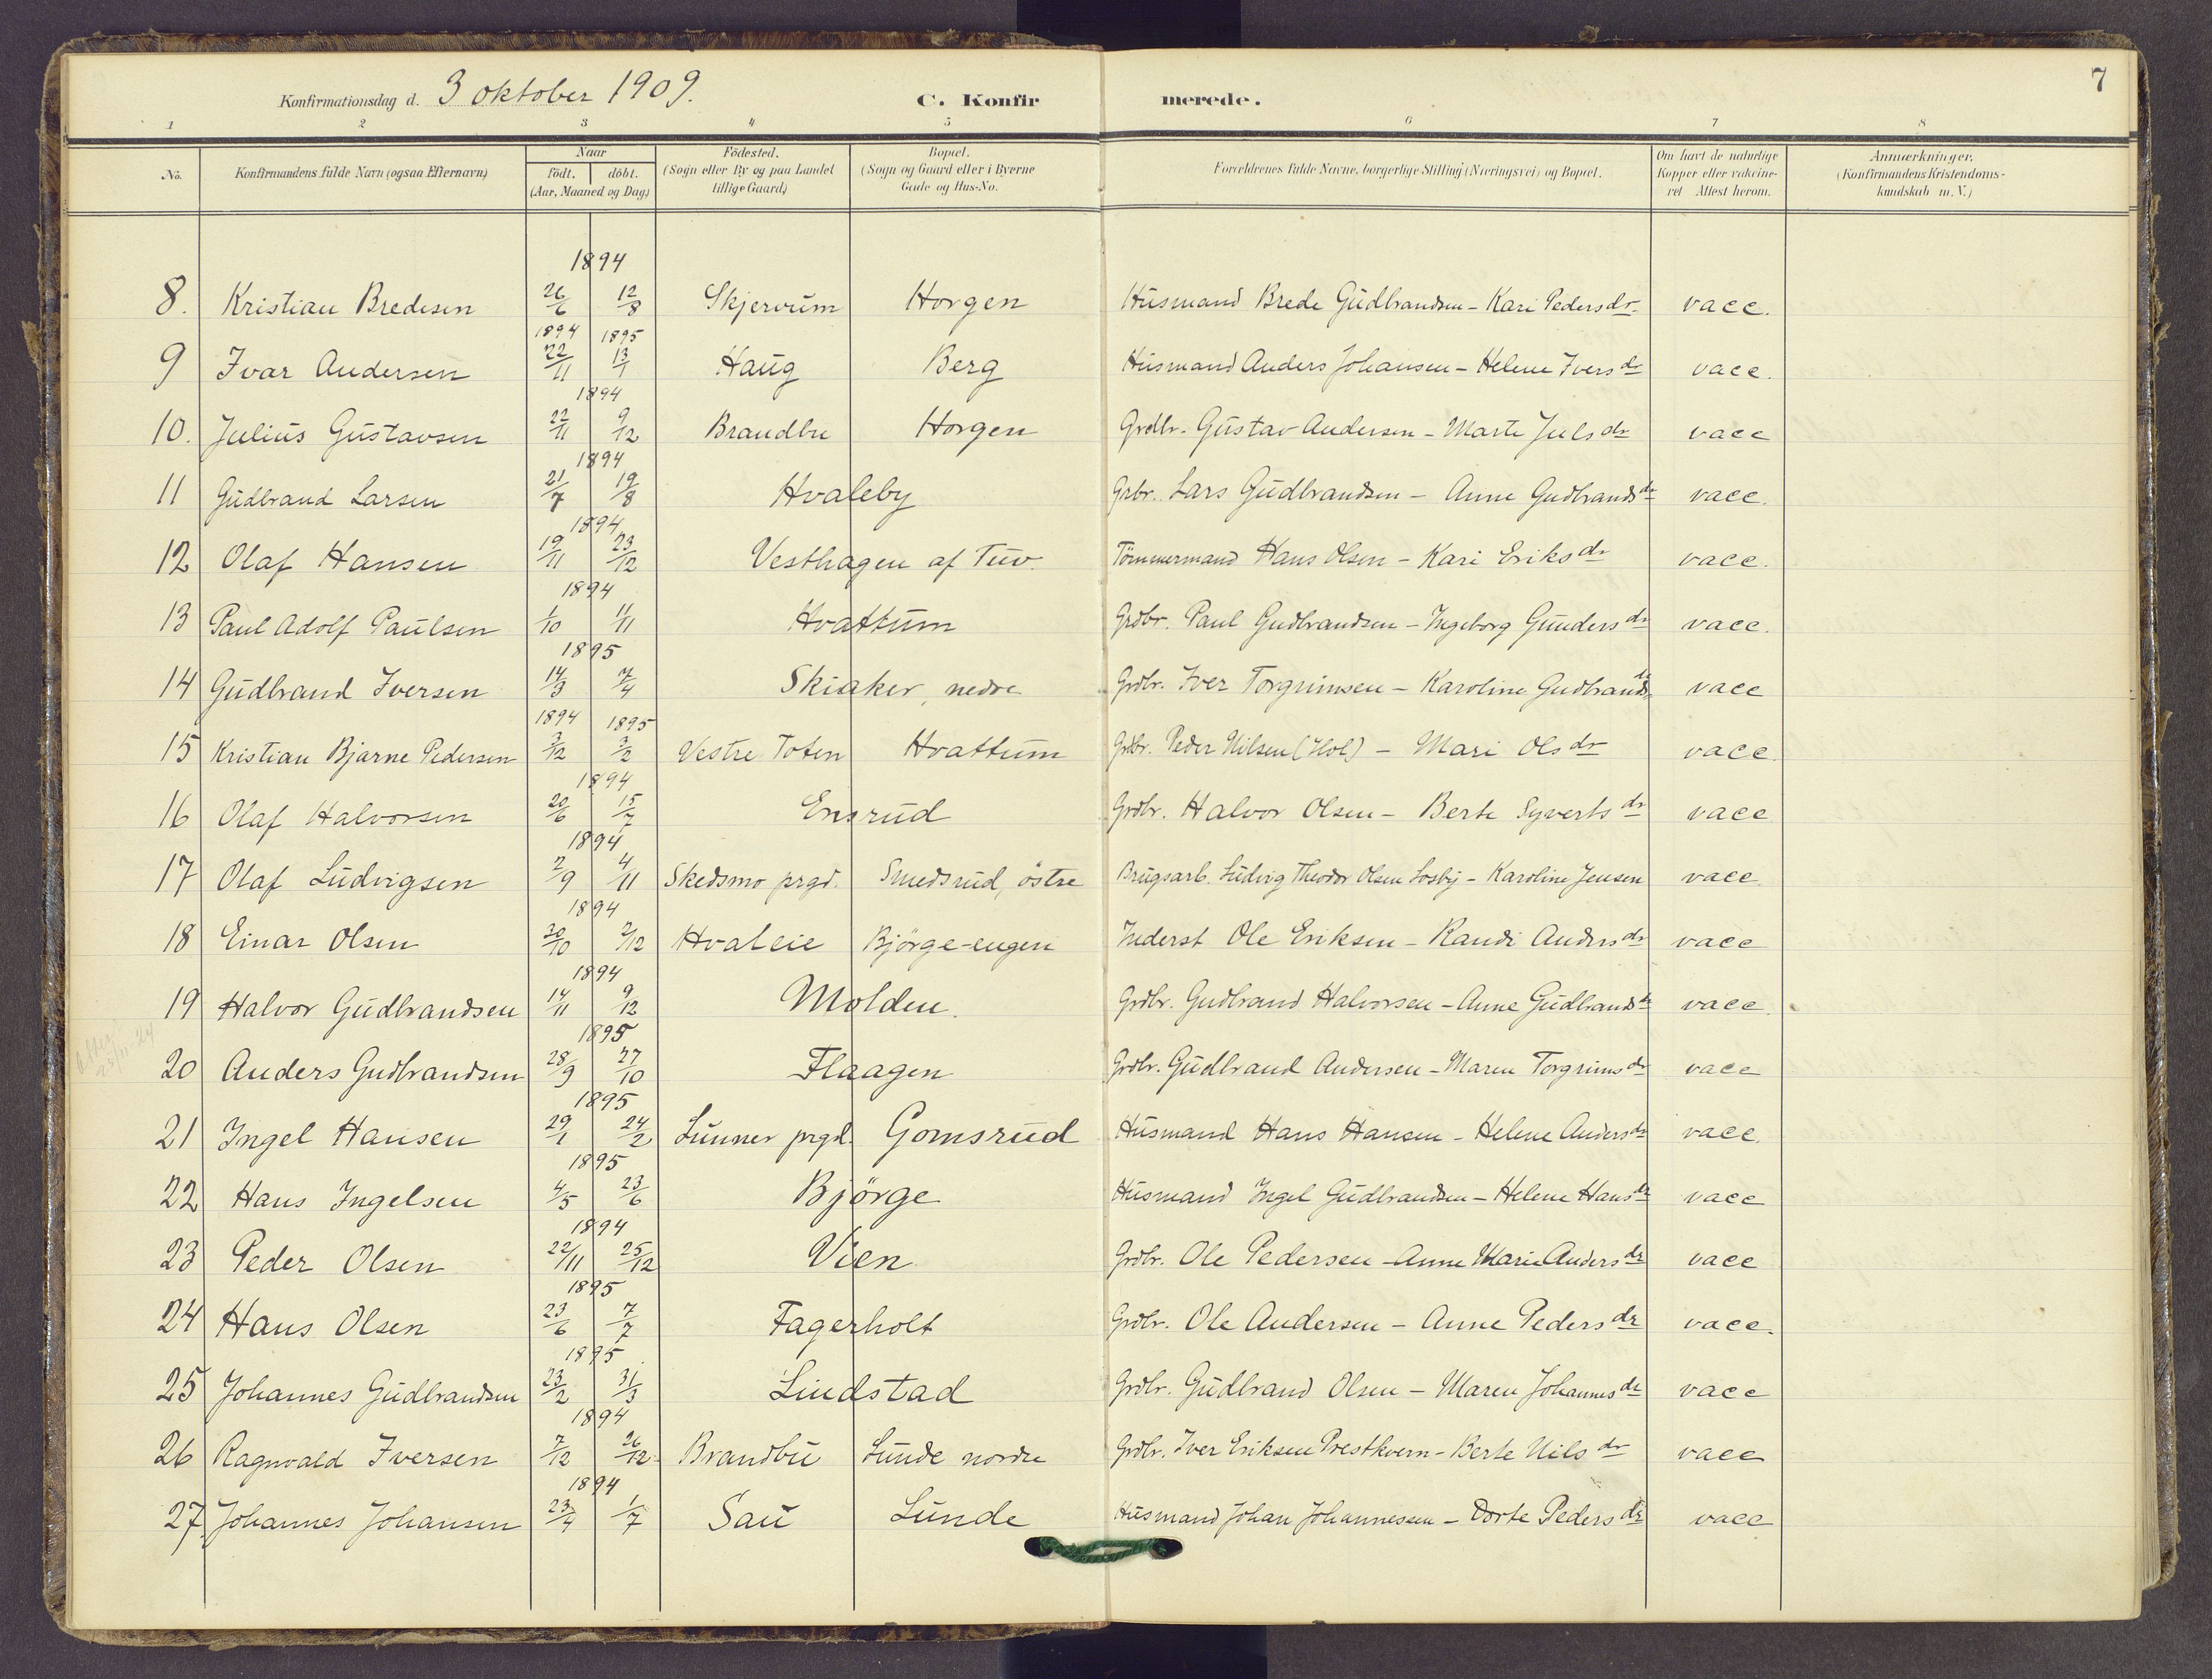 7
Konfirmationsdag d. 3 oktober 1909. C. Konfirmerede.
1 2 3 4 5 6 7 8
No. Konfirmandens fulde Navn (ogsaa Efternavn) Naar födt. döbt. (Aar, Maaned og Dag) Födested. (Sogn eller By og paa Landet tillige Gaard) Bopæl. (Sogn og Gaard eller i Byerne Gade og Hus-No. Forældrenes fulde Navne, borgerlige Stilling (Næringsvei) og Bopæl. Om havt de naturlige Kopper eller vakcineret Attest herom. Anmærkninger. (Konfirmandens Kristendomskundskab m. V.)
1894
8. Kristian Bredesen 26/6 12/8 Skjervum Horgen Husmand Brede Gudbrandsen - Kari Pedersdr. vacc.
1894 1895
9 Ivar Andersen 22/11 13/1 Haug Berg Husmand Anders Johansen - Helene Iversdr vacc.
1894
10. Julius Gustavsen 22/11 9/12 Brandbu Horgen Grdbr. Gustav Andersen - Marte Julsdr vacc
1894
11 Gudbrand Larsen 21/7 19/8 Hvaleby Grbr. Lars Gudbrandsen - Anne Gudbrandsdr vacc.
1894
12 Olaf Hansen 19/11 23/12 Vesthagen af Tuv. Tömmermand Hans Olsen - Kari Eriksdr vacc.
1894
13 Paul Adolf Paulsen 1/10 11/11 Hvattum Grdbr. Paul Gudbrandsen - Ingeborg Gundersdr vacc.
1895
14 Gudbrand Iversen 14/3 7/4 Skiaker, nedre Grdbr. Iver Torgrimsen - Karoline Gudbrandsdr vacc
1894 1895
15 Kristian Bjarne Pedersen 3/12 3/2 Vestre Toten Hvattum Grdbr. Peder Nilsen (Hol) - Mari Olsdr vacc.
1894
16 Olaf Halvorsen 20/6 15/7 Ensrud Grdbr. Halvor Olsen - Berte Syvertsdr vacc
1894
17 Olaf Ludvigsen 2/9 4/11 Skedsmo prgd. Smedsrud, östre Brugsarb. Ludvig Theodor Olsen Losby - Karoline Jensen vacc.
1894
18 Einar Olsen 30/10 2/12 Hvaleie Björge-engen Inderst Ole Eriksen - Randi Andersdr vacc
1894
19 Halvor Gudbrandsen 14/11 9/12 Molden. Grdbr. Gudbrand Halvorsen - Anne Gudbrandsdr vacc.
1895
20 Anders Gudbrandsen 28/9 27/10 Flaagen Grdbr. Gudbrand Andersen - Maren Torgrimsdr vacc
1895
21 Ingel Hansen 29/1 24/2 Lunner prgd. Gomsrud Husmand Hans Hansen - Helene Andersdr vacc.
1895
22 Hans Ingelsen 4/5 23/6 Björge Husmand Ingel Gudbrandsen - Helene Hansdr vacc
1894
23 Peder Olsen 22/11 25/12 Vien Grdbr. Ole Pedersen - Anne Marie Andersdr vacc
1895
24 Hans Olsen 23/6 7/7 Fagerholt Grdbr. Ole Andersen - Anne Pedersdr vacc.
1895
25 Johannes Gudbrandsen 23/2 31/3 Lindstad Grdbr. Gudbrand Olsen - Maren Johannesdr vacc
1894
26 Ragnvald Iversen 7/12 26/12 Brandbu Lunde nordre Grdbr. Iver Eriksen Prestkvern - Berte Nilsdr vacc
1894
27 Johannes Johansen 23/4 1/7 Sau Lunde Husmand Johan Johannessen - Dorte Pedersdr vacc